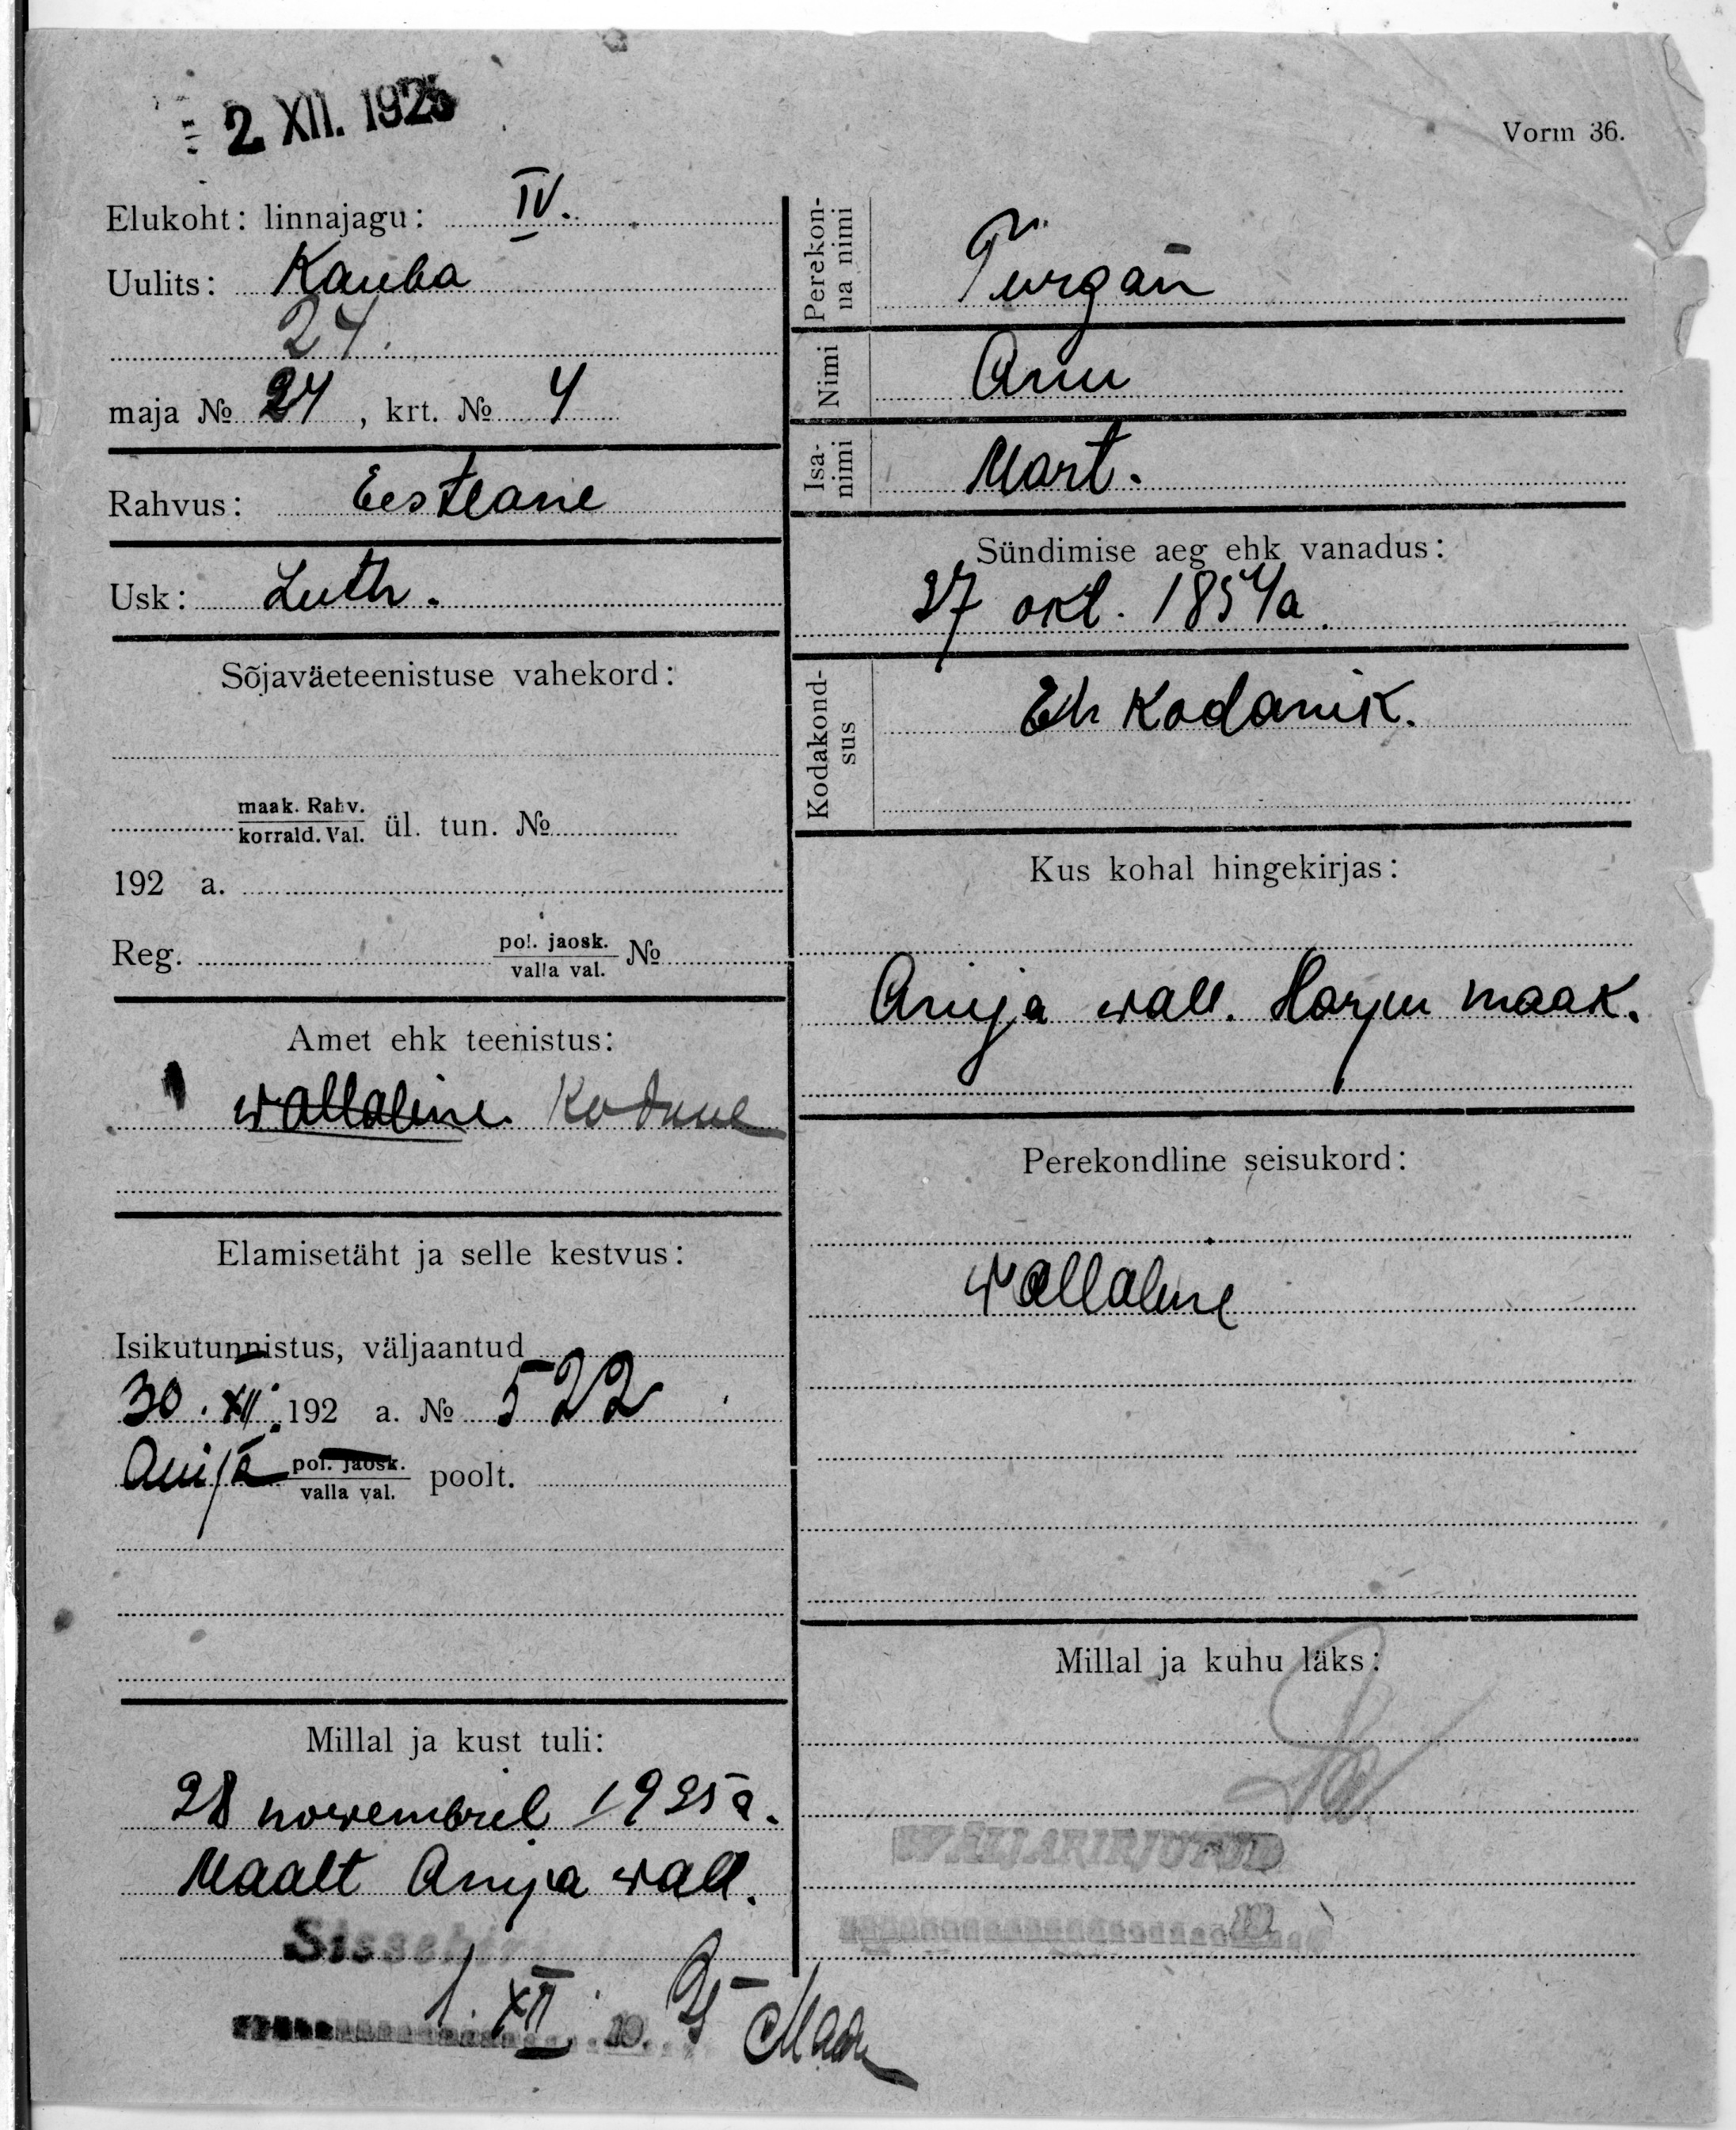 2. XII. 1925
Vorm 36.
Elukoht: linnajagu: IV.
Uulits: Kauba
24.
maja № 24, krt. № 4
Rahvus: Eestlane
Usk: Luth.
Sõjaväeteenistuse vahekord:
maak. Rahv.
korrald. Val. ül. tun. №
192 a.
Reg. pol. jaosk. №
valla val.
Amet ehk teenistus:
wallaline Kodune
Elamisetäht ja selle kestvus:
Isikutunnistus, väljaantud
30. XII. 192 a. № 522
Anija pol. jaosk.
valla val. poolt.
Millal ja kust tuli:
28 nowembril 1925 a.
Maalt Anija wall.
1. XII 25
Perekonna nimi
Türgan
Nimi Anu
Isanimi Mart.
Sündimise aeg ehk vanadus:
27 okt. 1854 a.
Kodakondsus
kodanik.
Kus kohal hingekirjas:
Anija wall. Harju maak.
Perekondline seisukord:
wallaline
Millal ja kuhu läks:
VÄLJAKIRJUTUD